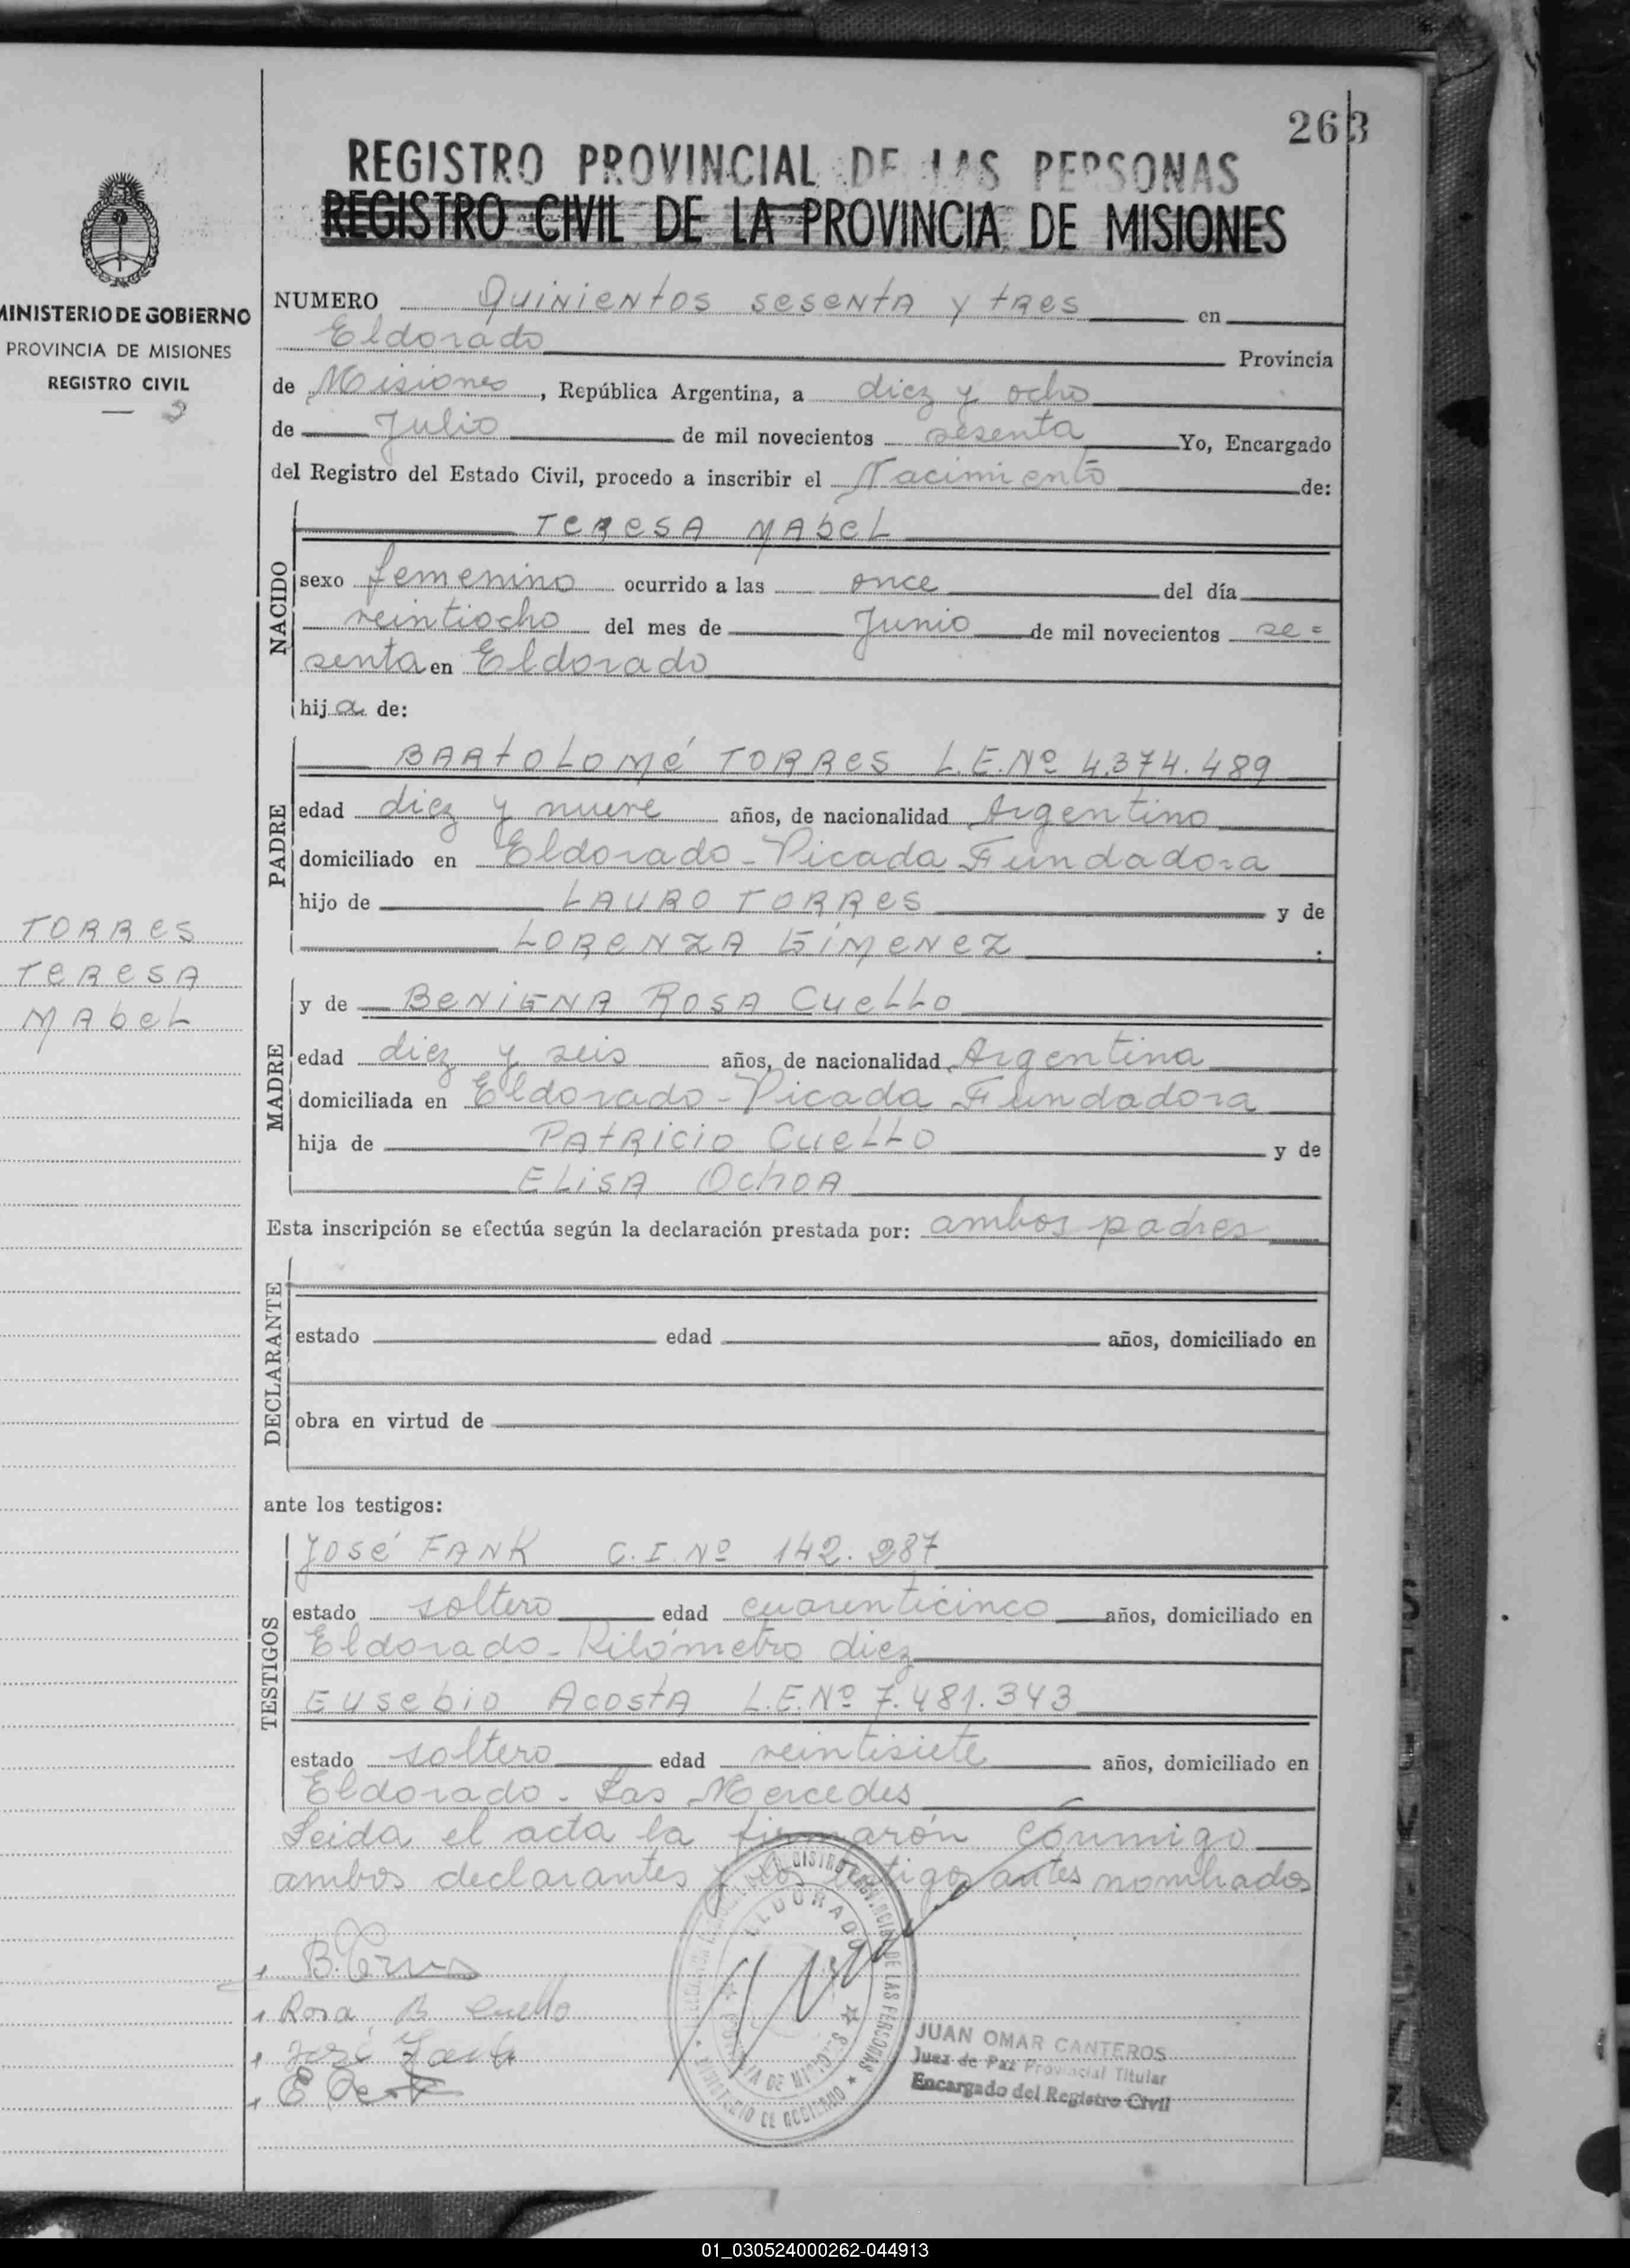 263
REGISTRO PROVINCIAL DE LAS PERSONAS
REGISTRO CIVIL DE LA PROVINCIA DE MISIONES
MINISTERIO DE GOBIERNO
PROVINCIA DE MISIONES
REGISTRO CIVIL
NUMERO Quinientos sesenta y tres en
Eldorado Provincia
de Misiones, República Argentina, a diez y ocho
de Julio de mil novecientos sesenta Yo, Encargado
del Registro del Estado Civil, procedo a inscribir el Nacimiento de:
NACIDO
TERESA MABEL
sexo femenino ocurrido a las once del día
veintiocho del mes de Junio de mil novecientos se=
senta en Eldorado
hija de:
PADRE
BARTOLOMÉ TORRES L.E.Nº 4.374.489
edad diez y nueve años, de nacionalidad Argentino
domiciliado en Eldorado - Picada Fundadora
hijo de LAURO TORRES y de
LORENZA GIMENEZ :
TORRES
TERESA
MABEL
MADRE
y de BENIGNA ROSA CUELLO
edad diez y seis años, de nacionalidad Argentina
domiciliada en Eldorado - Picada Fundadora
hija de PATRICIO CUELLO y de
ELISA OCHOA
Esta inscripción se efectúa según la declaración prestada por: ambos padres
DECLARANTE
estado edad años, domiciliado en
obra en virtud de
ante los testigos:
TESTIGOS
JOSÉ FANK C.I.Nº 142.287
estado soltero edad cuarenticinco años, domiciliado en
Eldorado - Kilómetro diez
EUSEBIO ACOSTA L.E.Nº 7.481.343
estado soltero edad veintisiete años, domiciliado en
Eldorado - Las Mercedes
Leida el acta la firmarón conmigo
ambos declarantes y los testigos antes nombrados
B. Torres
Rosa B. Cuello
José Fank
ELDORADO
MINISTERIO DE GOBIERNO
JUAN OMAR CANTEROS
Juez de Paz Provincial Titular
Encargado del Registro Civil
01_030524000262-044913